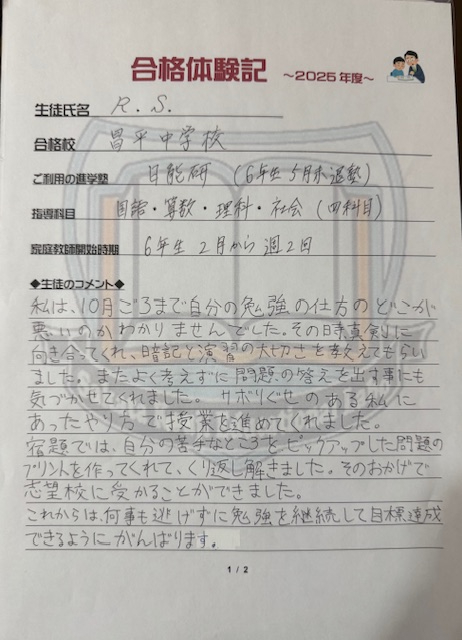 合格体験記 ～2025年度～
生徒氏名 R.S.
合格校 昌平中学校
ご利用の進学塾 日能研 (6年生5月末退塾)
指導科目 国語・算数・理科・社会 (四科目)
家庭教師開始時期 6年生2月から週2回
◆生徒のコメント◆
私は、10月ごろまで自分の勉強の仕方のどこが
悪いのかわかりませんでした。その時真剣に
向き合ってくれ、暗記と演習の大切さを教えてもらい
ました。またよく考えずに問題の答えを出す事にも
気づかせてくれました。サボりぐせのある私に
あったやり方で授業を進めてくれました。
宿題では、自分の苦手なところをピックアップした問題の
プリントを作ってくれて、くり返し解きました。そのおかげで
志望校に受かることができました。
これからは、何事も逃げずに勉強を継続して目標達成
できるようにがんばります。
1 / 2